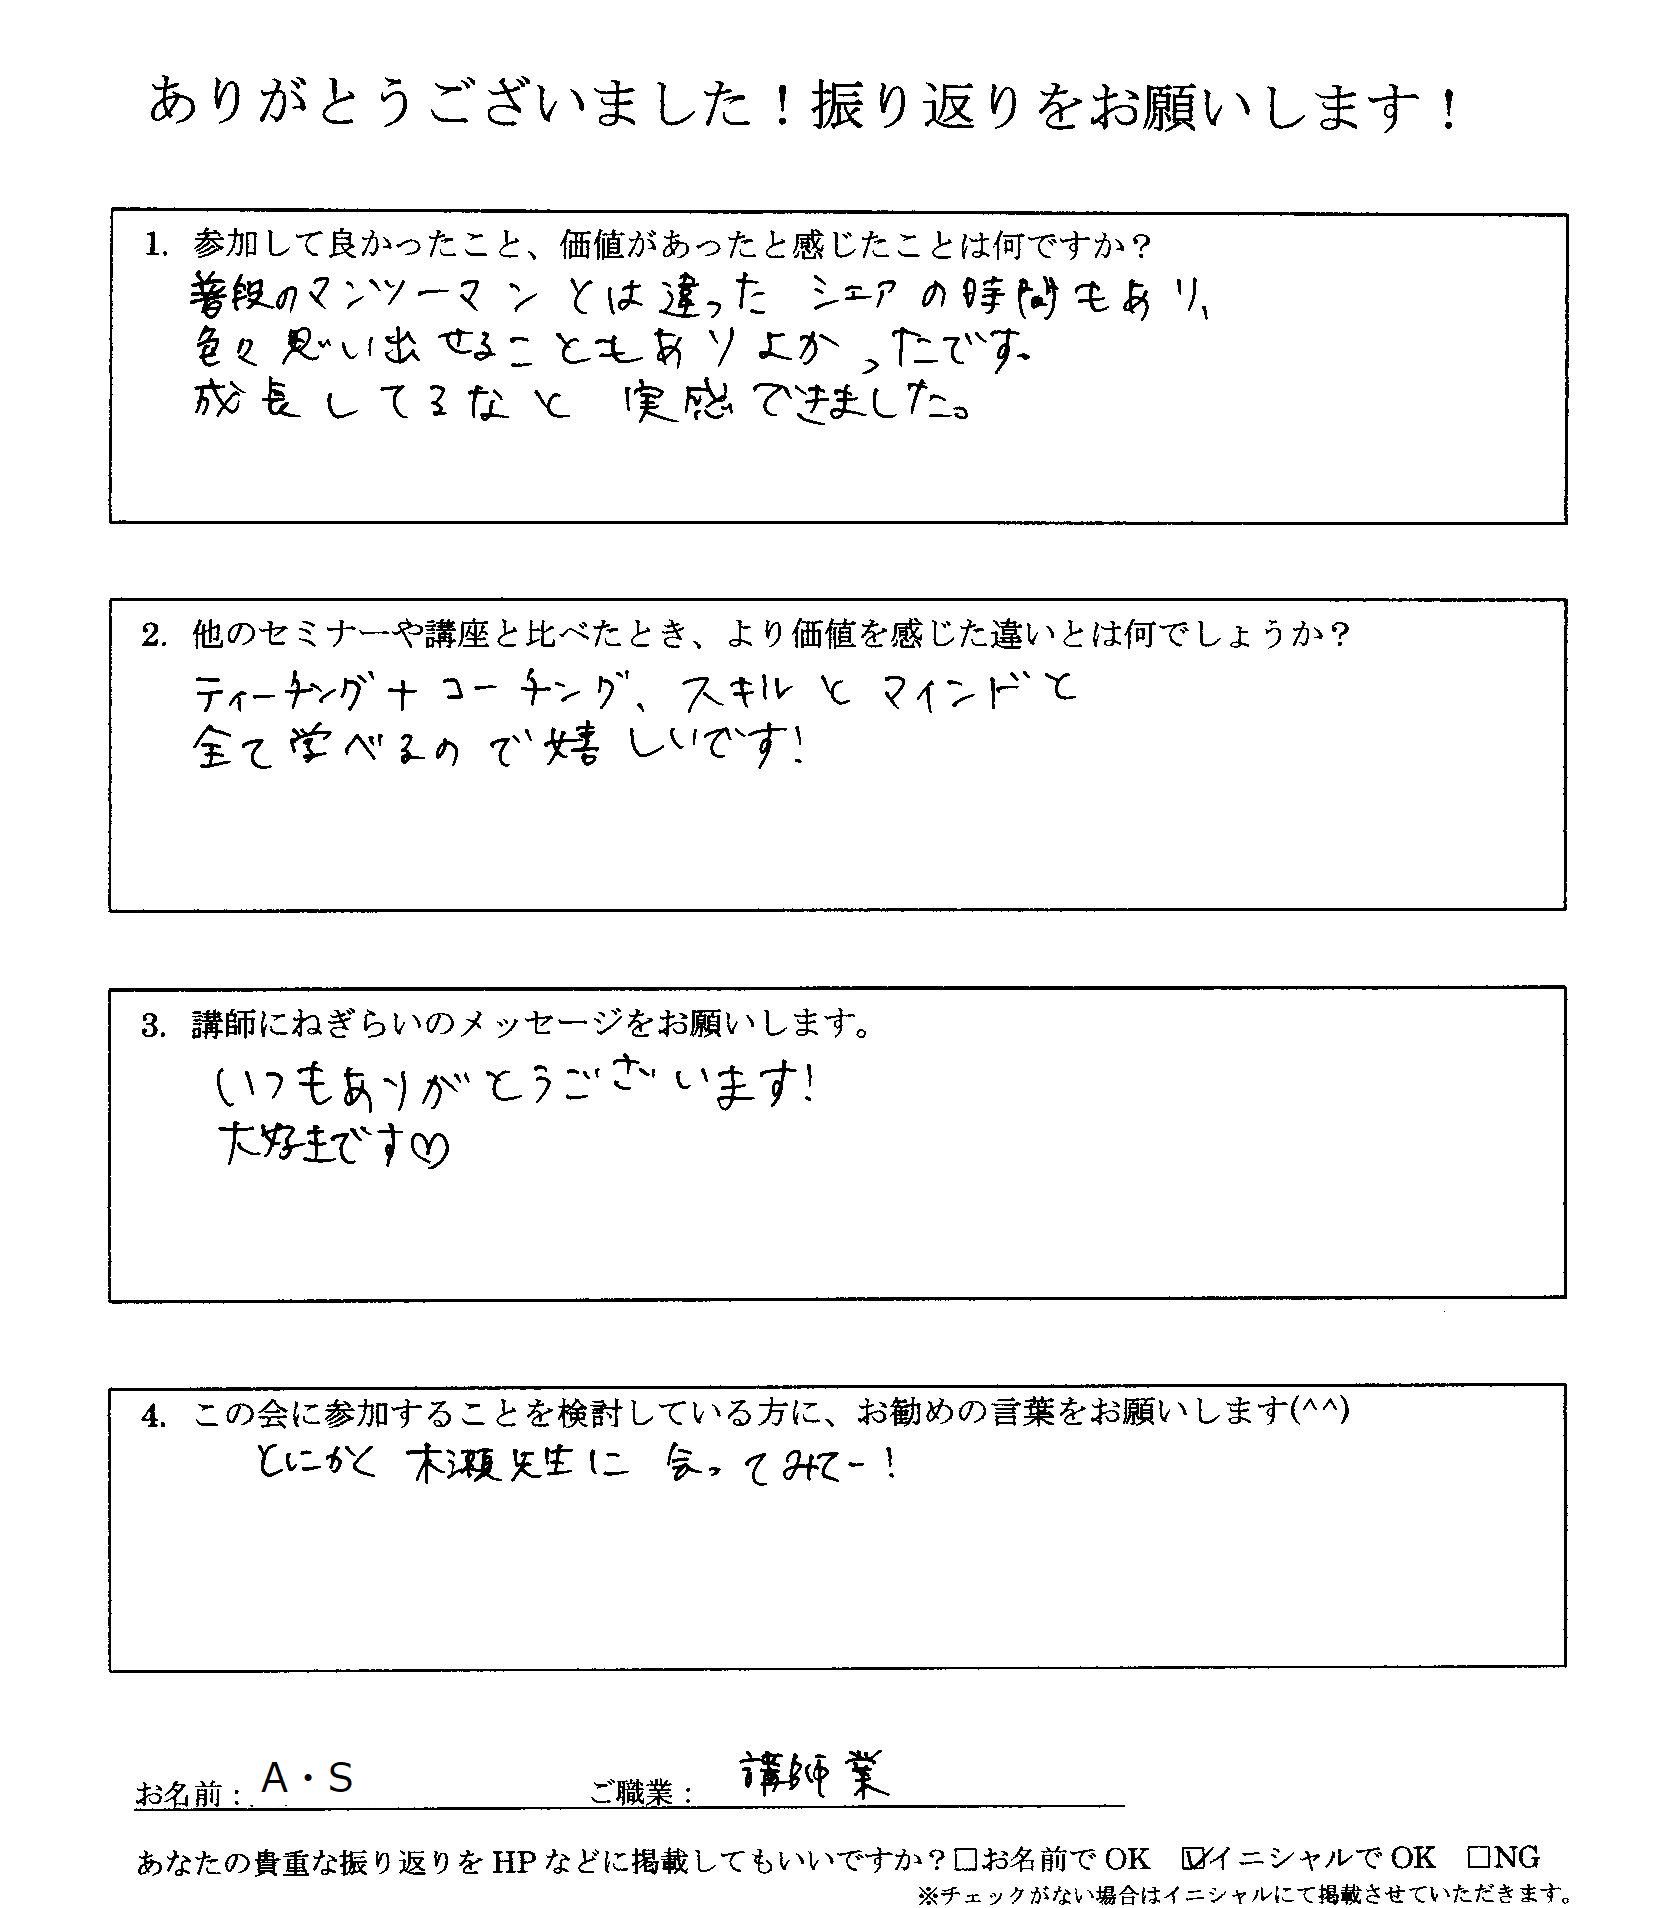 ありがとうございました！振り返りをお願いします！
1. 参加して良かったこと、価値があったと感じたことは何ですか？
普段のマンツーマンとは違った シェアの時間もあり、
色々思い出せることもありよかったです。
成長してるなと 実感できました。
2. 他のセミナーや講座と比べたとき、より価値を感じた違いとは何でしょうか？
ティーチング＋コーチング、スキルとマインドと
全て学べるので嬉しいです！
3. 講師にねぎらいのメッセージをお願いします。
いつもありがとうございます！
大好きです♡
4. この会に参加することを検討している方に、お勧めの言葉をお願いします(^^)
とにかく 木瀬先生に 会ってみてー！
お名前： A・S ご職業： 講師業
あなたの貴重な振り返りを HP などに掲載してもいいですか？□お名前で OK ☑イニシャルで OK □NG
※チェックがない場合はイニシャルにて掲載させていただきます。